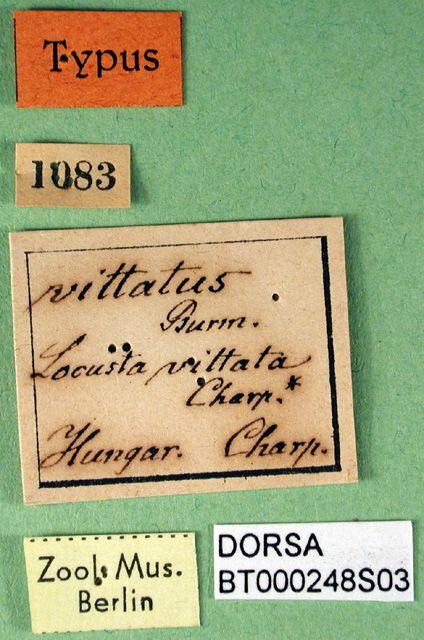 Typus
1083
vittatus
Burm.
Locusta vittata
Charp.*
Hungar. Charp.
Zool. Mus.
Berlin
DORSA
BT000248S03